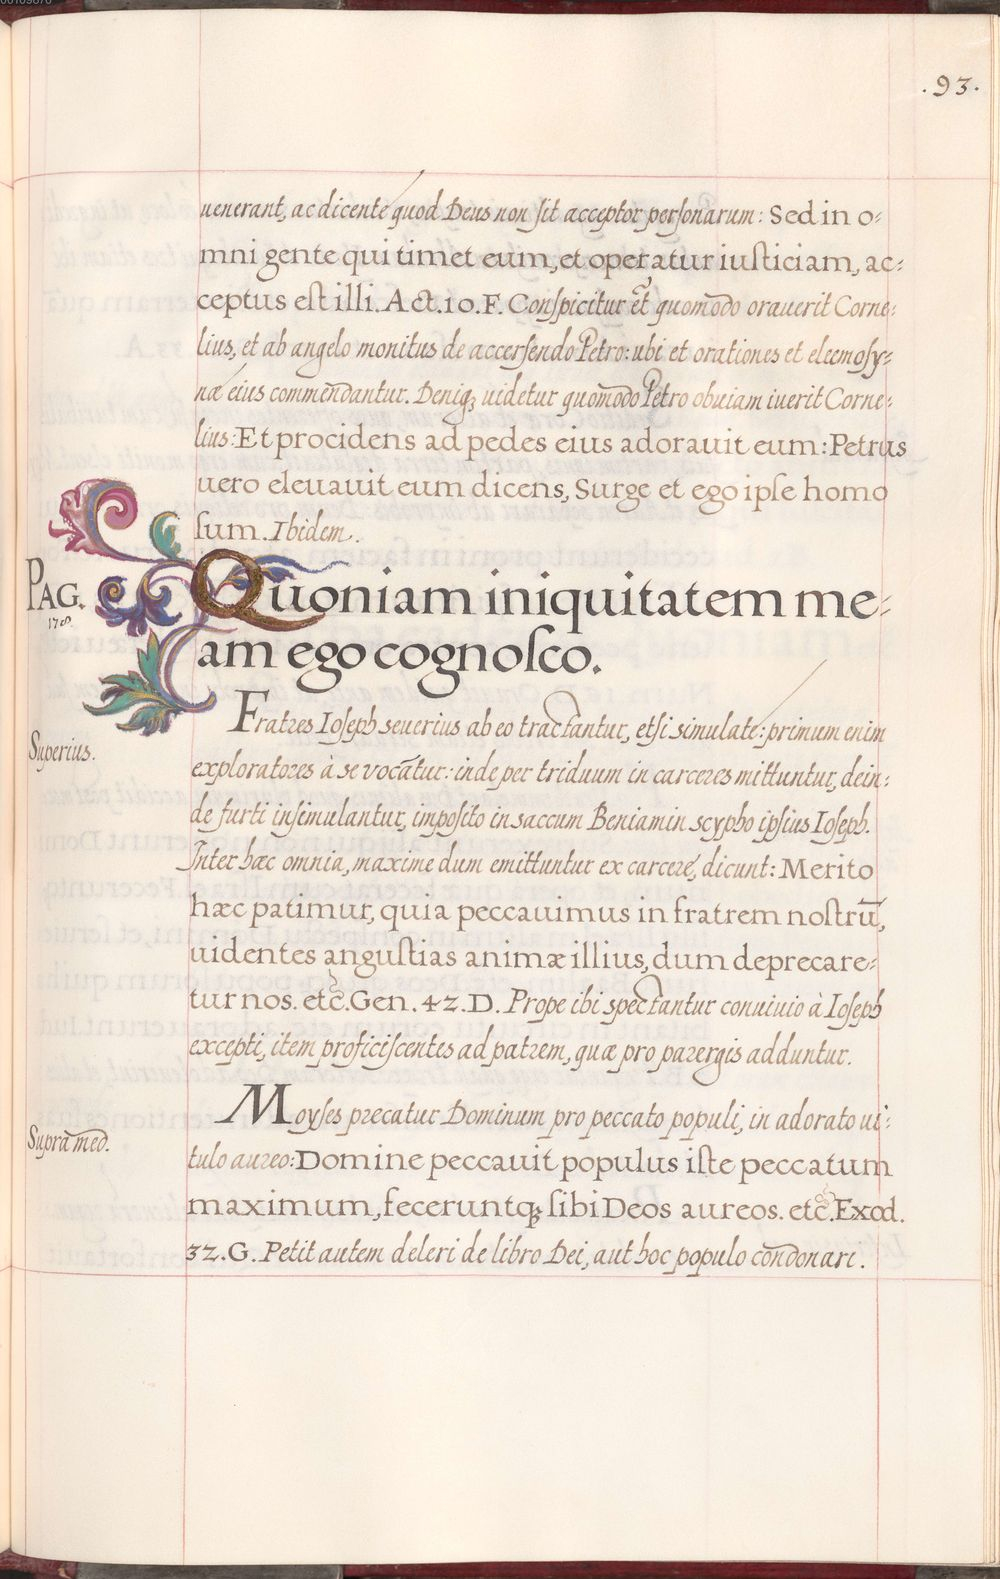 .93.
uenerant, ac dicente quod Deus non sit acceptor personarum: Sed in o-
mni gente qui timet eum, et operatur iusticiam, ac-
ceptus est illi. Act. 10. F. Conspicitur et quomodo orauerit Corne-
lius, et ab angelo monitus de accersendo Petro: ubi et orationes et eleemosy-
næ eius commendantur. Deniq; uidetur quomodo Petro obuiam iuerit Corne-
lius: Et procidens ad pedes eius adorauit eum: Petrus
uero eleuauit eum dicens, Surge et ego ipse homo
sum. Ibidem.
PAG.
178.
Quoniam iniquitatem me-
am ego cognosco.
Superius.
Fratres Ioseph seuerius ab eo tractantur, etsi simulate: primum enim
exploratores à se vocātur: inde per triduum in carceres mittuntur, dein-
de furti insimulantur, imposito in saccum Beniamin scypho ipsius Ioseph.
Inter hæc omnia, maxime dum emittuntur ex carcere, dicunt: Merito
hæc patimur, quia peccauimus in fratrem nostrū,
uidentes angustias animæ illius, dum deprecare-
tur nos. etc. Gen. 42. D. Prope ibi spectantur conuiuio à Ioseph
excepti, item proficiscentes ad patrem, quæ pro parergis adduntur.
Supra med.
Moyses precatur Dominum pro peccato populi, in adorato ui-
tulo aureo: Domine peccauit populus iste peccatum
maximum, feceruntq; sibi Deos aureos. etc. Exod.
32. G. Petit autem deleri de libro Dei, aut hoc populo condonari.